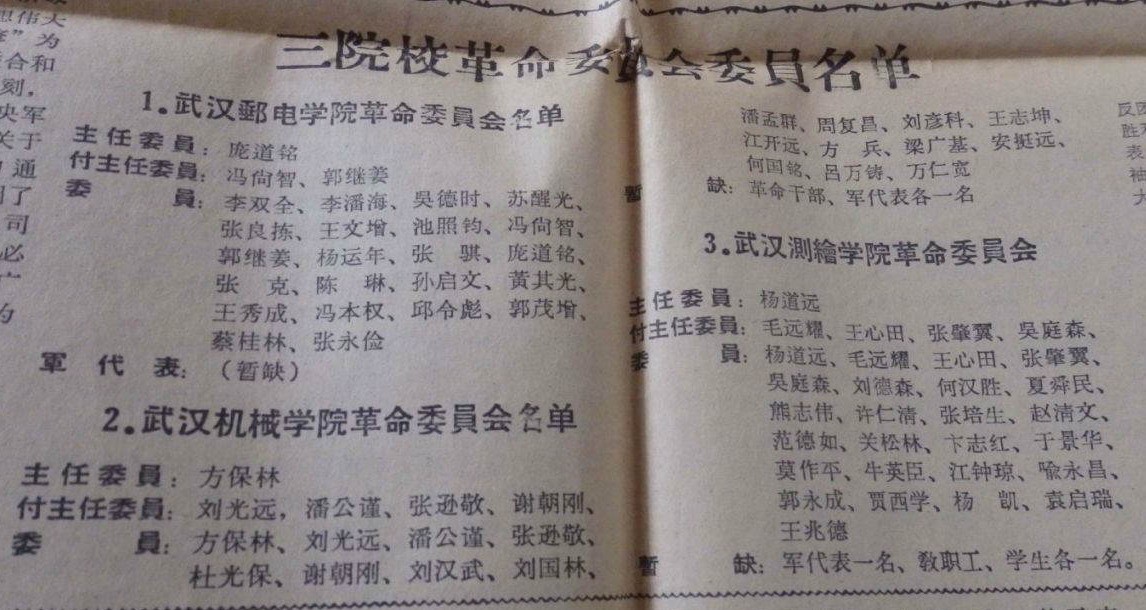 思伟大
” 为
合和
刻，
央军
关于
通
了
司
必
广
为
三院校革命委員会委員名单
1.武汉郵电学院革命委員会名单
主任委員：庞道铭
付主任委員：冯尙智、郭继姜
委　　員：李双全、李潘海、吳德时、苏醒光、
张良拣、王文增、池照钧、冯尙智、
郭继姜、杨运年、张　骐、庞道铭、
张　克、陈　琳、孙启文、黃其光、
王秀成、冯本权、邱令彪、郭茂增、
蔡桂林、张永俭
軍代表：（暂缺）
2.武汉机械学院革命委員会名单
主任委員：方保林
付主任委員：刘光远，潘公谨、张逊敬、谢朝刚、
委　　員：方保林、刘光远、潘公谨、张逊敬、
杜光保、谢朝刚、刘汉武、刘国林、
潘孟群、周复昌、刘彦科、王志坤、
江开远、方　兵、梁广基、安挺远、
何国铭、吕万铸、万仁宽
暫　　缺：革命干部、军代表各一名
3.武汉測繪学院革命委員会
主任委員：杨道远
付主任委員：毛远耀、王心田、张肇翼、吳庭森、
委　　員：杨道远、毛远耀、王心田、张肇翼、
吳庭森、刘德森、何汉胜、夏舜民、
熊志伟、许仁清、张培生、赵清文、
范德如、关松林、卞志红、于景华、
莫作平、牛英臣、江钟琼、喩永昌、
郭永成、贾西学、杨　凯、袁启瑞、
王兆德
暫　　缺：军代表一名、敎职工、学生各一名。
反
胜
表
袖
大